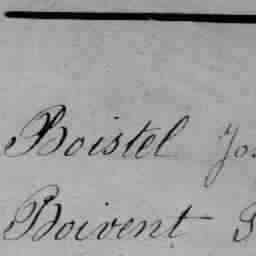 Boistel Jos
Boivent